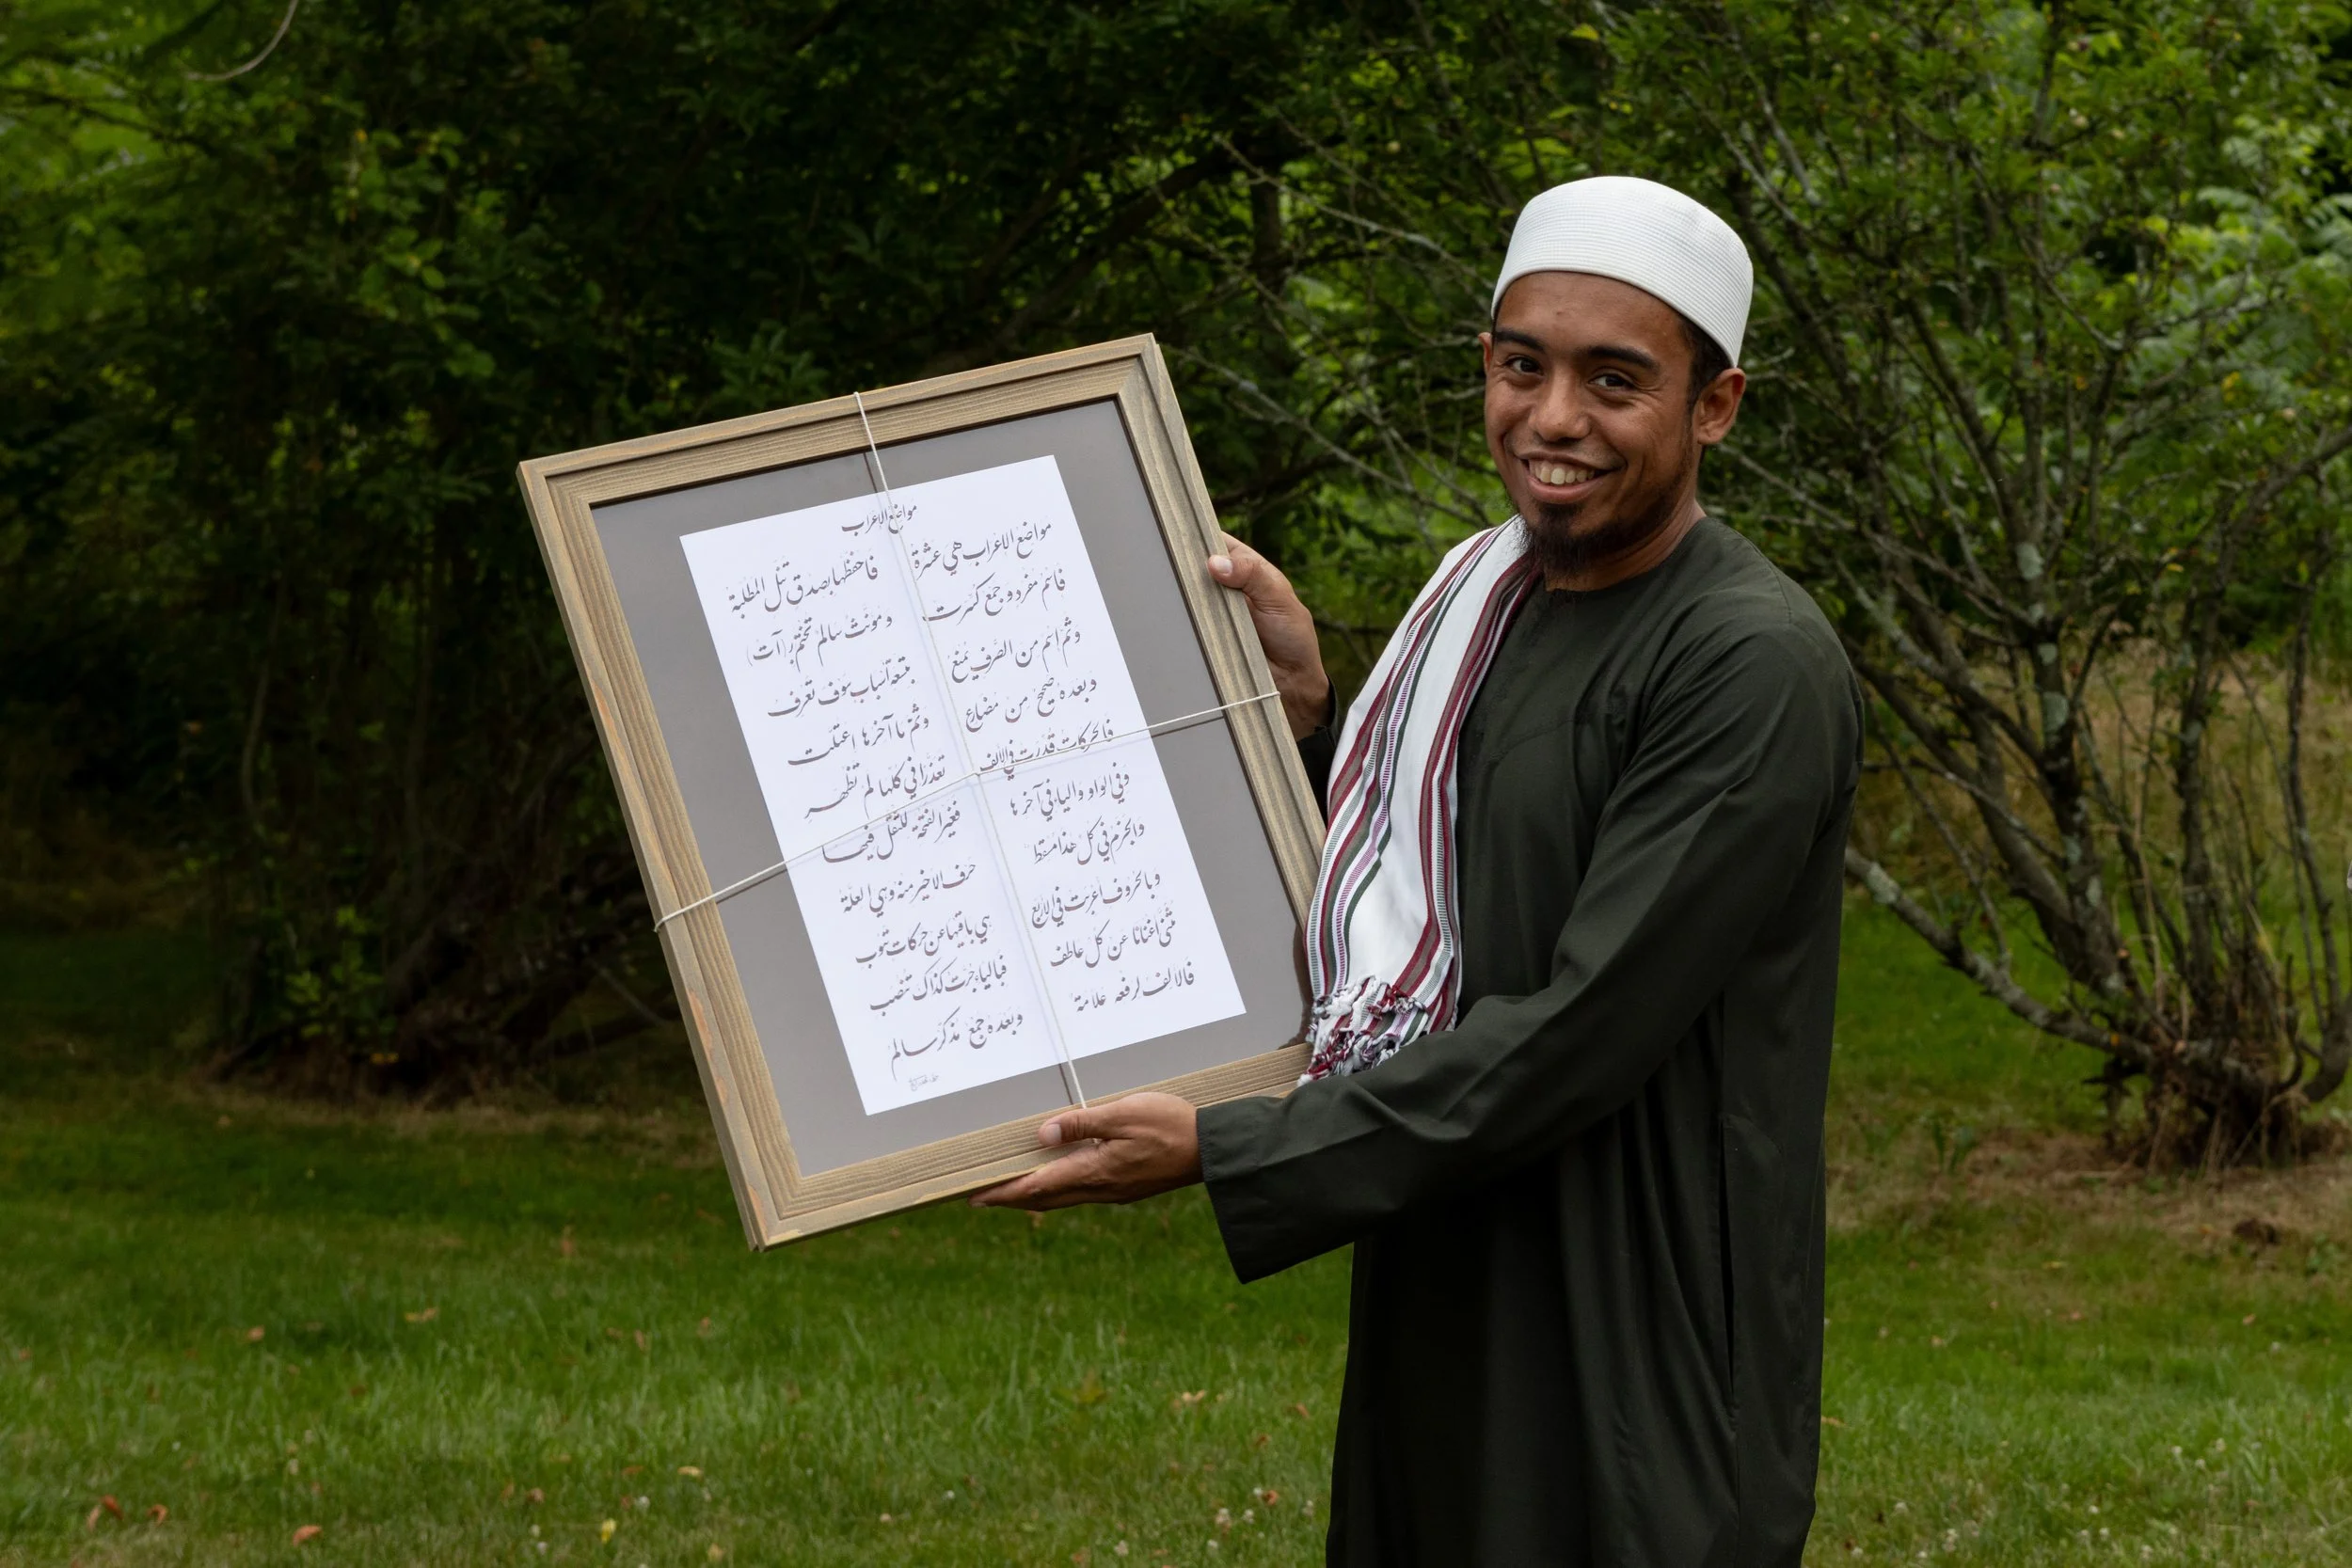 مواضع الإعراب
مواضع الاعراب هي عشرة فاحفظها بصدق تنل المطلبة
فاسم مفرد وجمع كسرت ومونث سالم تختم بـ(آت)
وثم اسم من الصرف يمنع بتسعة أسباب سوف تعرف
وبعده صحيح من مضارع وثم ما آخرها اعتلت
فالحركات قدرت في الألف تعذرا في كلها لم تظهر
وفي الواو والياء في آخرها فغير الفتحة للثقل فيها
والجزم في كل هذا مسقط حرف الاخير منه وهي العلة
وبالحروف أعربت في الأربع هي باقيها عن حركات تنوب
مثنى أغنانا عن كل عاطف فبالياء جرت كذاك تنصب
فالالف لرفعه علامة وبعده جمع مذكر سالم